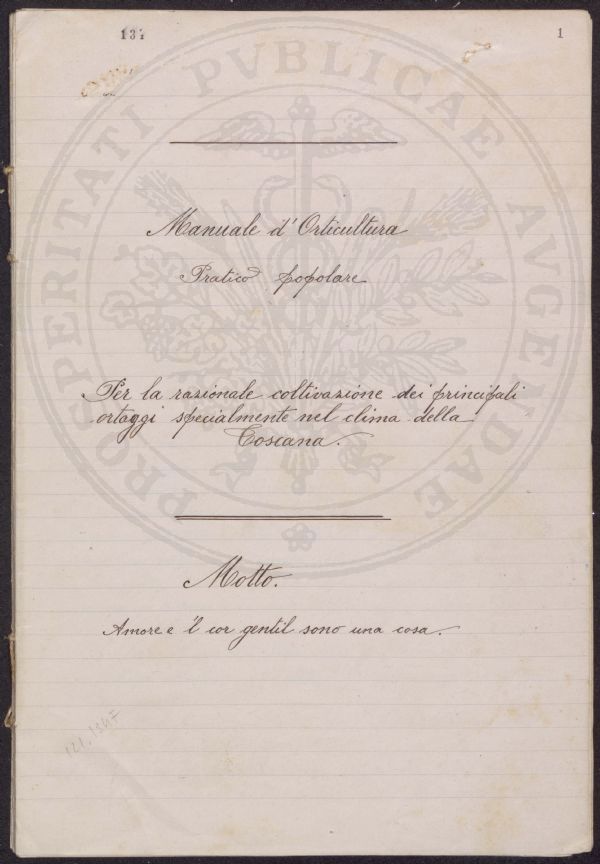 134
1
PROSPERITATI PVBLICAE AVGENDAE
Manuale d'Orticultura
Pratico popolare
Per la razionale coltivazione dei principali
ortaggi specialmente nel clima della
Toscana.
Motto.
Amore e 'l cor gentil sono una cosa.
121.1347